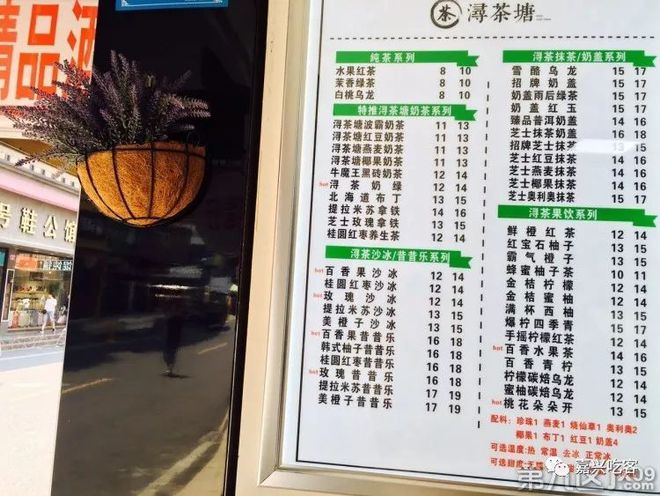 精品酒
号鞋公馆
茶 浔茶塘
纯茶系列
水果红茶 8 10
茉香绿茶 8 10
白桃乌龙 8 10
特推浔茶塘奶茶系列
浔茶塘波霸奶茶 11 13
浔茶塘红豆奶茶 11 13
浔茶塘燕麦奶茶 11 13
浔茶塘椰果奶茶 11 13
牛魔王黑砖奶茶 12 14
hot 浔茶奶绿 12 14
北海道布丁 13 15
提拉米苏拿铁 13 15
芝士玫瑰拿铁 13 15
桂圆红枣养生茶 13 15
浔茶沙冰/昔昔乐系列
hot 百香果沙冰 12 14
桂圆红枣沙冰 12 14
hot 玫瑰沙冰 12 14
提拉米沙冰 13 15
美橙子沙冰 13 15
hot 百香果昔昔乐 16 18
韩式柚子昔昔乐 16 18
桂圆红枣昔昔乐 16 18
hot 玫瑰昔昔乐 16 18
提拉米昔昔乐 17 19
美橙子昔昔乐 17 19
浔茶抹茶/奶盖系列
雪酪乌龙 15 17
招牌奶盖 15 17
奶盖雨后绿茶 15 17
奶盖红玉 15 17
臻品普洱奶盖 14 16
芝士抹茶奶盖 16 18
招牌芝士抹茶 15 17
芝士红豆抹茶 15 17
芝士燕麦抹茶 15 17
芝士椰果抹茶 15 17
芝士奥利奥抹茶 15 17
浔茶果饮系列
鲜橙红茶 12 14
红宝石柚子 13 15
霸气橙子 13 15
蜂蜜柚子茶 10 11
金桔柠檬 12 14
金桔蜜柚 12 14
满杯西柚 13 15
爆柠四季青 15 17
手摇柠檬红茶 12 14
hot 百香水果茶 14 16
百香青柠 13 15
柠檬碳焙乌龙 12 14
蜜柚碳焙乌龙 12 14
hot 桃花朵朵开 13 15
配料: 珍珠1 燕麦1 烧仙草1 奥利奥2
椰果1 布丁1 红豆1 奶盖4
可选温度: 热 常温 去冰 正常冰
可选甜度: 无糖
嘉兴吃客